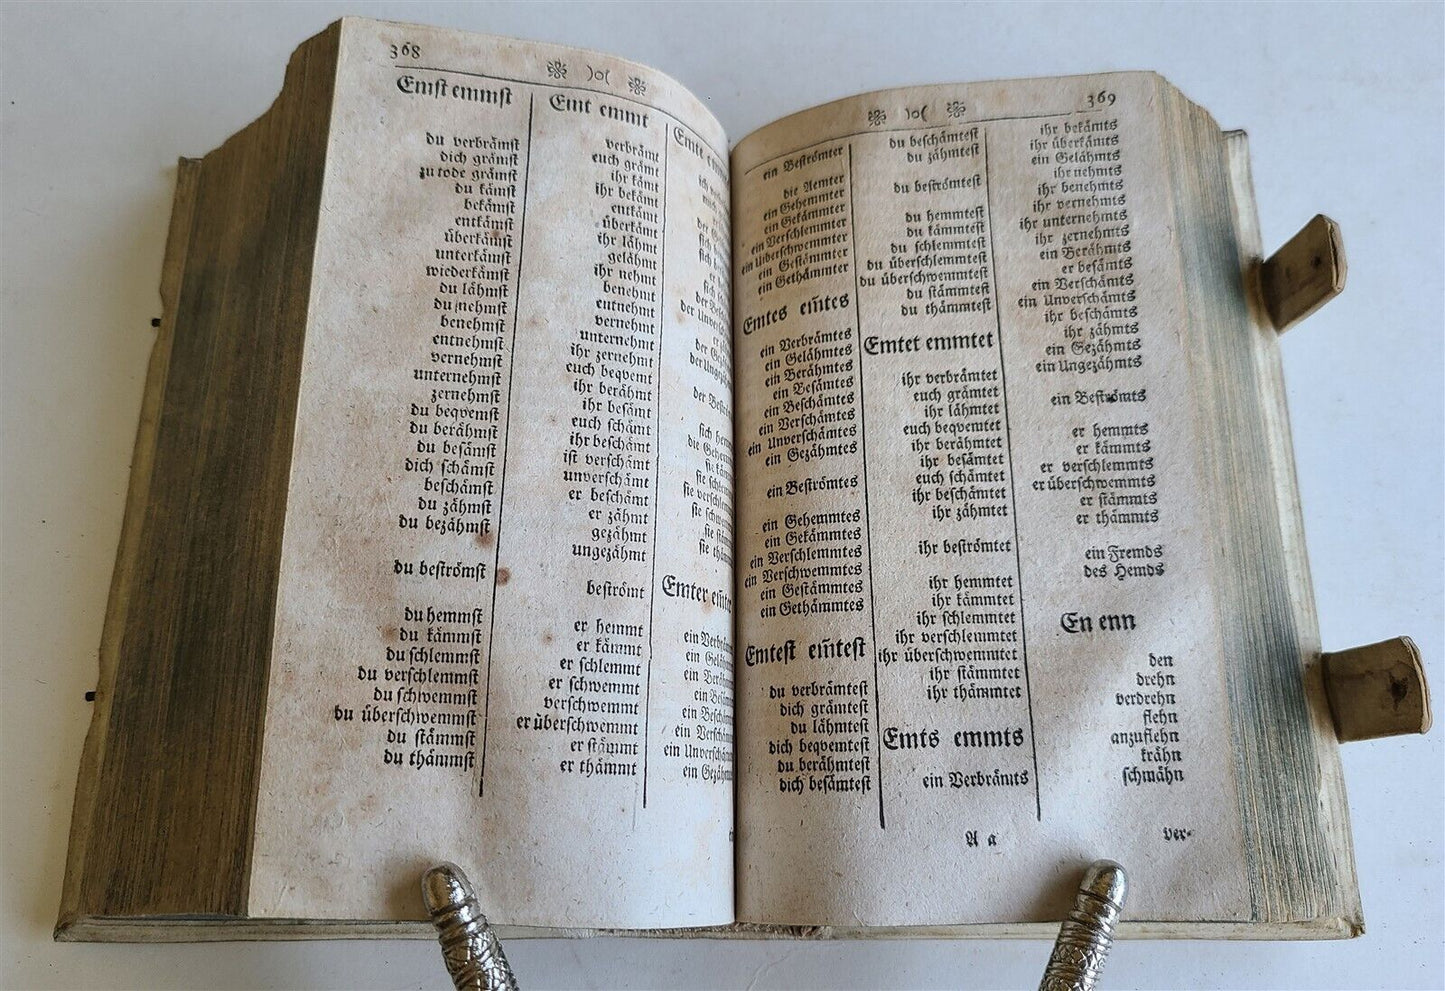 368
)o(
Emst emmst
du verbrämst
dich grämst
zu tode grämst
du kämst
bekämst
entkämst
überkämst
unterkämst
wiederkämst
du lähmst
du nehmst
benehmst
entnehmst
vernehmst
unternehmst
zernehmst
du beqvemst
du berähmst
du besämst
dich schämst
beschämst
du zähmst
du bezähmst
du beströmst
du hemmst
du kämmst
du schlemmst
du verschlemmst
du schwemmst
du überschwemmst
du stämmst
du thämmst
Emt emmt
verbrämt
euch grämt
ihr kämt
ihr bekämt
entkämt
überkämt
ihr lähmt
gelähmt
ihr nehmt
benehmt
entnehmt
vernehmt
unternehmt
ihr zernehmt
euch beqvemt
ihr berähmt
ihr besämt
euch schämt
ihr beschämt
ist verschämt
unverschämt
er beschämt
er zähmt
gezähmt
ungezähmt
beströmt
er hemmt
er kämmt
er schlemmt
er schwemmt
verschwemmt
er überschwemmt
er stämmt
er thämmt
Emte
Emter em̃ter
369
)o(
ein Beströmter
die Aemter
ein Gehemmter
ein Gekämmter
ein Verschlemmter
ein Uiberschwemmter
ein Gestämmter
ein Gethämmter
Emtes em̃tes
ein Verbrämtes
ein Gelähmtes
ein Berähmtes
ein Besämtes
ein Beschämtes
ein Verschämtes
ein Unverschämtes
ein Gezähmtes
ein Beströmtes
ein Gehemmtes
ein Gekämmtes
ein Verschlemmtes
ein Verschwemmtes
ein Gestämmtes
ein Gethämmtes
Emtest em̃test
du verbrämtest
dich grämtest
du lähmtest
dich beqvemtest
du berähmtest
dich besämtest
du beschämtest
du zähmtest
du beströmtest
du hemmtest
du kämmtest
du schlemmtest
du überschlemmtest
du überschwemmtest
du stämmtest
du thämmtest
Emtet emmtet
ihr verbrämtet
euch grämtet
ihr lähmtet
euch beqvemtet
ihr berähmtet
ihr besämtet
euch schämtet
ihr beschämtet
ihr zähmtet
ihr beströmtet
ihr hemmtet
ihr kämmtet
ihr schlemmtet
ihr verschlemmtet
ihr überschwemmtet
ihr stämmtet
ihr thämmtet
Emts emmts
ein Verbrämts
ihr bekämts
ihr überkämts
ein Gelähmts
ihr nehmts
ihr benehmts
ihr vernehmts
ihr unternehmts
ihr zernehmts
ein Berähmts
er besämts
ein Verschämts
ein Unverschämts
ihr beschämts
ihr zähmts
ein Gezähmts
ein Ungezähmts
ein Beströmts
er hemmts
er kämmts
er verschlemmts
er überschwemmts
er stämmts
er thämmts
ein Fremds
des Hemds
En enn
den
drehn
verdrehn
flehn
anzuflehn
krähn
schmähn
A a
ver-